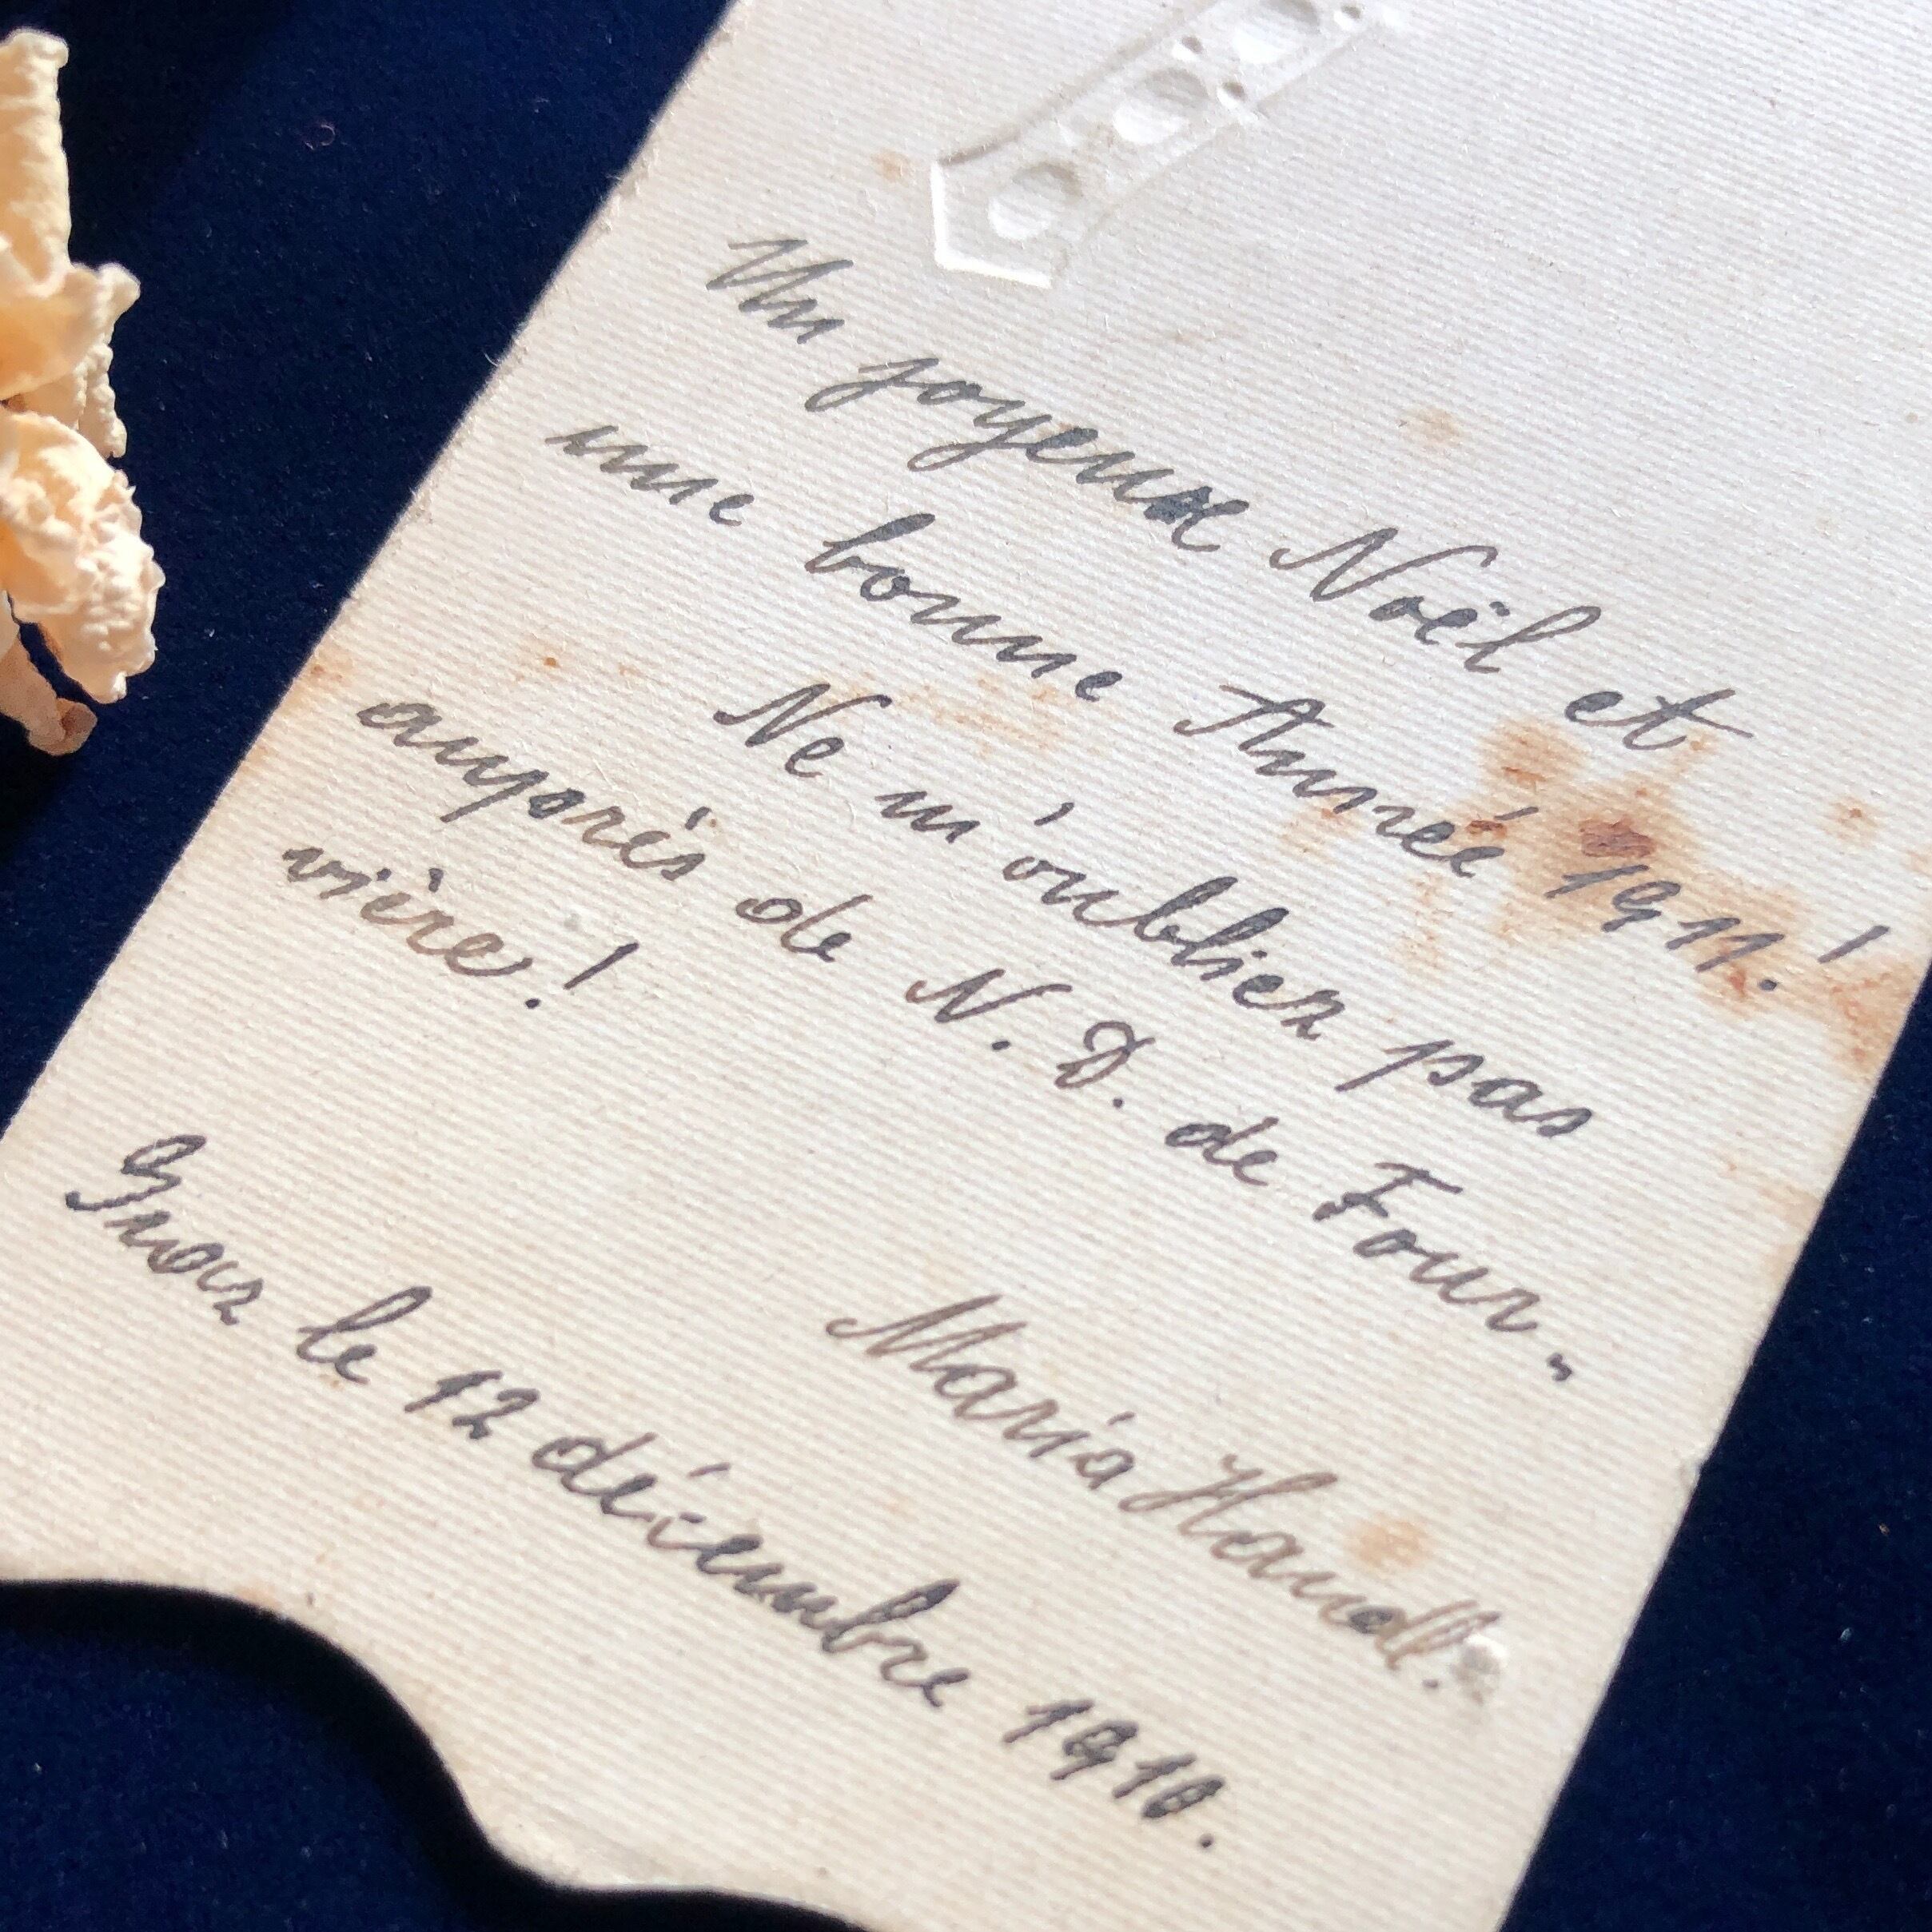 Un joyeux Noël et
une bonne Année 1911!
Ne m'oubliez pas
auprès de N. D. de Four-
vière!
Maria Handl.
Graz le 12 décembre 1910.